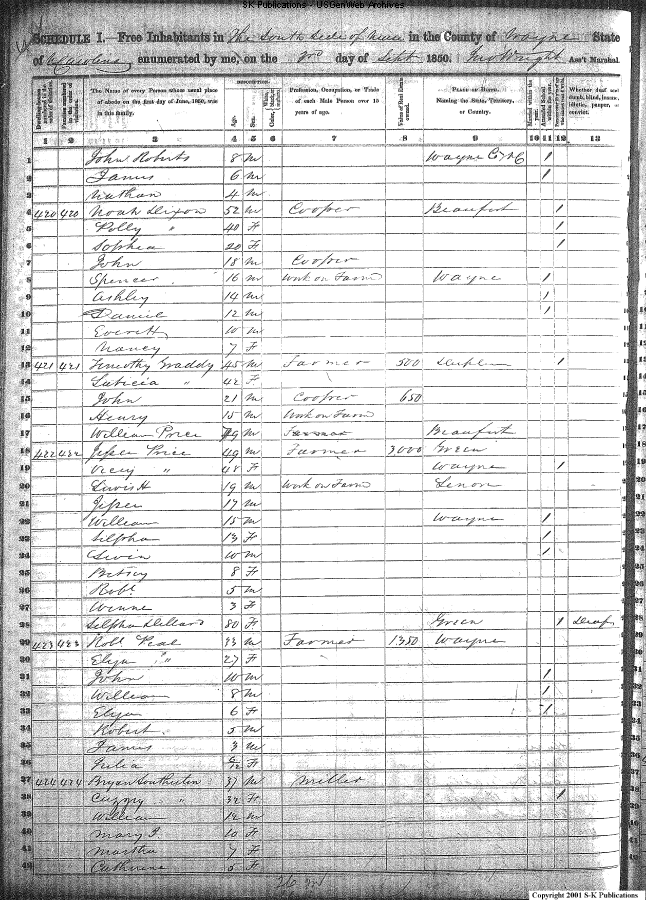 SK Publications - USGenWeb Archives
SCHEDULE I.—Free Inhabitants in The South Side of in the County of Wayne State
of N Carolina enumerated by me, on the day of Sept 1850. Jno Wright Ass't Marshal.
Dwelling-houses numbered in the order of visitation.
Families numbered in the order of visitation.
The Name of every Person whose usual place of abode on the first day of June, 1850, was in this family.
DESCRIPTION.
Age.
Sex.
Color, White, black, or mulatto.
Profession, Occupation, or Trade of each Male Person over 15 years of age.
Value of Real Estate owned.
PLACE OF BIRTH. Naming the State, Territory, or Country.
Married within the year.
Attended School within the year.
Whether deaf and dumb, blind, insane, idiotic, pauper, or convict.
1 2 3 4 5 6 7 8 9 10 11 12 13
1 John Roberts 8 M Wayne Co NC 1
2 James 6 M 1
3 Nathan 4 M
4 420 420 Noah Dixon 52 M Cooper Beaufort 1
5 Polly " 40 F 1
6 Sophia 20 F 1
7 John 18 M Cooper
8 Spencer 16 M Work on Farm Wayne 1
9 Ashley 14 M 1
10 Daniel 12 M 1
11 Everett 10 M
12 Nancy 7 F
13 421 421 Timothy Graddy 45 M Farmer 500 Duplin 1
14 " 42 F
15 John 21 M Cooper 650
16 Henry 15 M Work on Farm
17 William Price 19 M Farmer Beaufort
18 422 422 Jesse Price 49 M Farmer 3000 Green
19 Vicey " 48 F Wayne 1
20 Lewis H 19 M Work on Farm Lenoir
21 Jesse 17 M
22 William 15 M Wayne 1
23 Silpha 13 F 1
24 10 M 1
25 Betsey 8 F
26 Robt 5 M
27 Winne 3 F
28 Silpha Dillard 80 F Green 1 Deaf
29 423 423 Robt Peal 33 M Farmer 1350 Wayne
30 Eliza " 27 F
31 John 10 M 1
32 William 8 M 1
33 Eliza 6 F 1
34 Robert 5 M
35 James 3 M
36 Julia 6/12 F
37 424 424 Bryan 37 M Miller
38 " 32 F 1
39 William 12 M
40 Mary J. 10 F
41 Martha 7 F
42 Catherine 5 F
Copyright 2001 S-K Publications